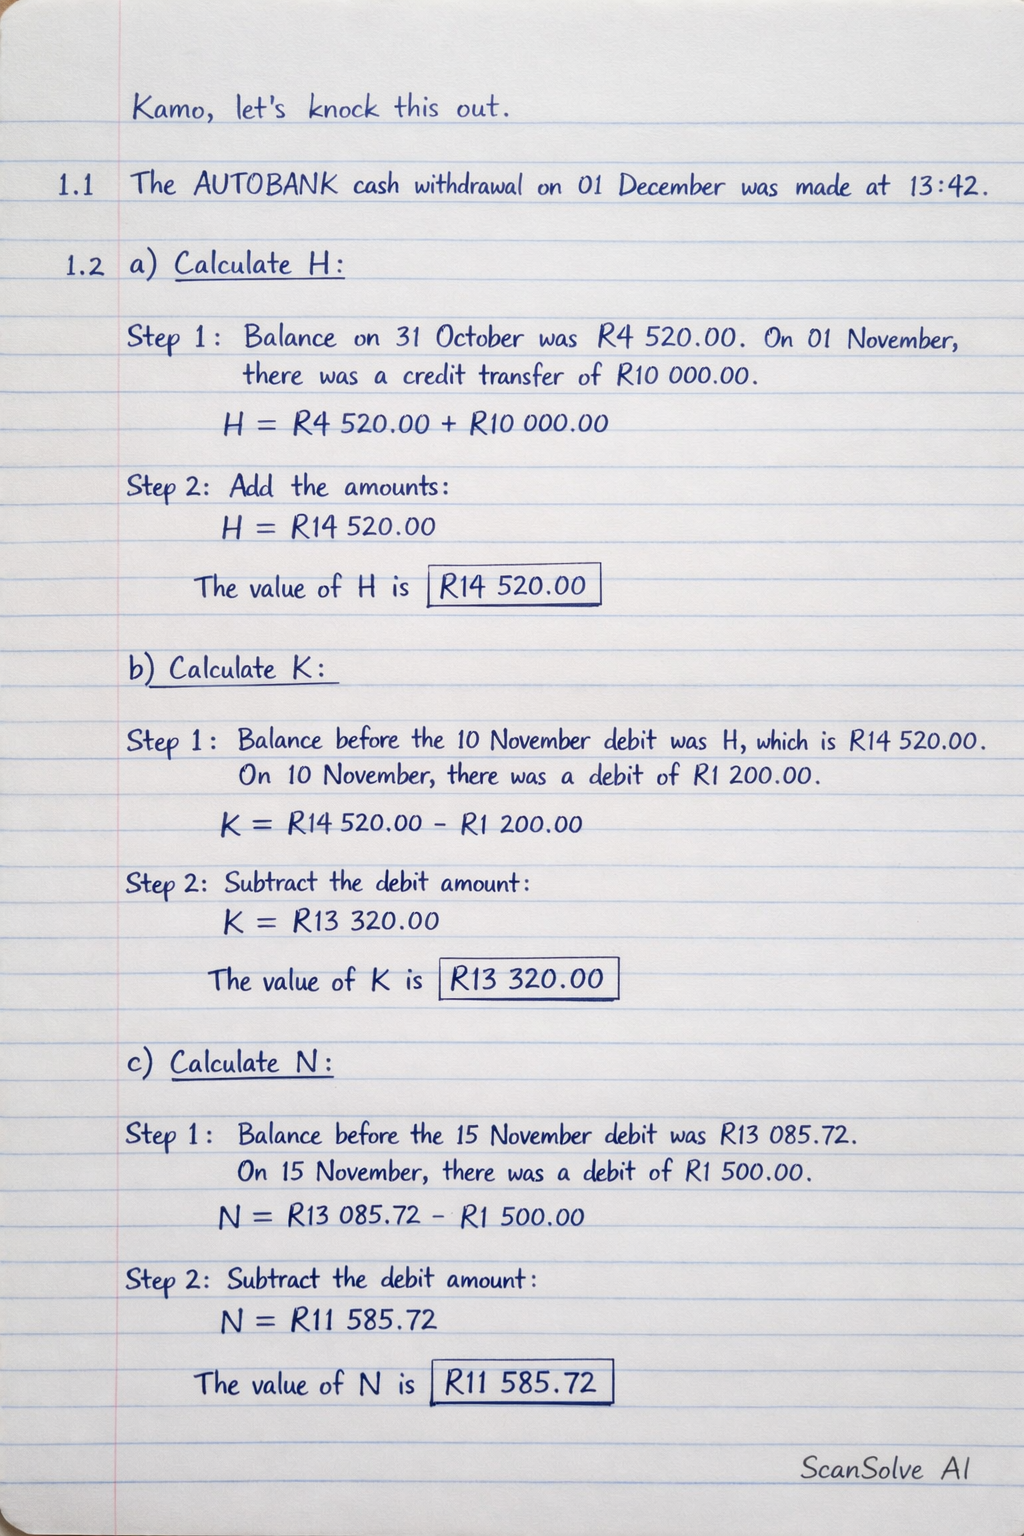 Kamo, let's knock this out.
1.1 The AUTOBANK cash withdrawal on 01 December was made at 13:42.
1.2 a) Calculate H:
Step 1: Balance on 31 October was R4 520.00. On 01 November,
there was a credit transfer of R10 000.00.
H = R4 520.00 + R10 000.00
Step 2: Add the amounts:
H = R14 520.00
The value of H is R14 520.00
b) Calculate K:
Step 1: Balance before the 10 November debit was H, which is R14 520.00.
On 10 November, there was a debit of R1 200.00.
K = R14 520.00 - R1 200.00
Step 2: Subtract the debit amount:
K = R13 320.00
The value of K is R13 320.00
c) Calculate N:
Step 1: Balance before the 15 November debit was R13 085.72.
On 15 November, there was a debit of R1 500.00.
N = R13 085.72 - R1 500.00
Step 2: Subtract the debit amount:
N = R11 585.72
The value of N is R11 585.72
ScanSolve AI